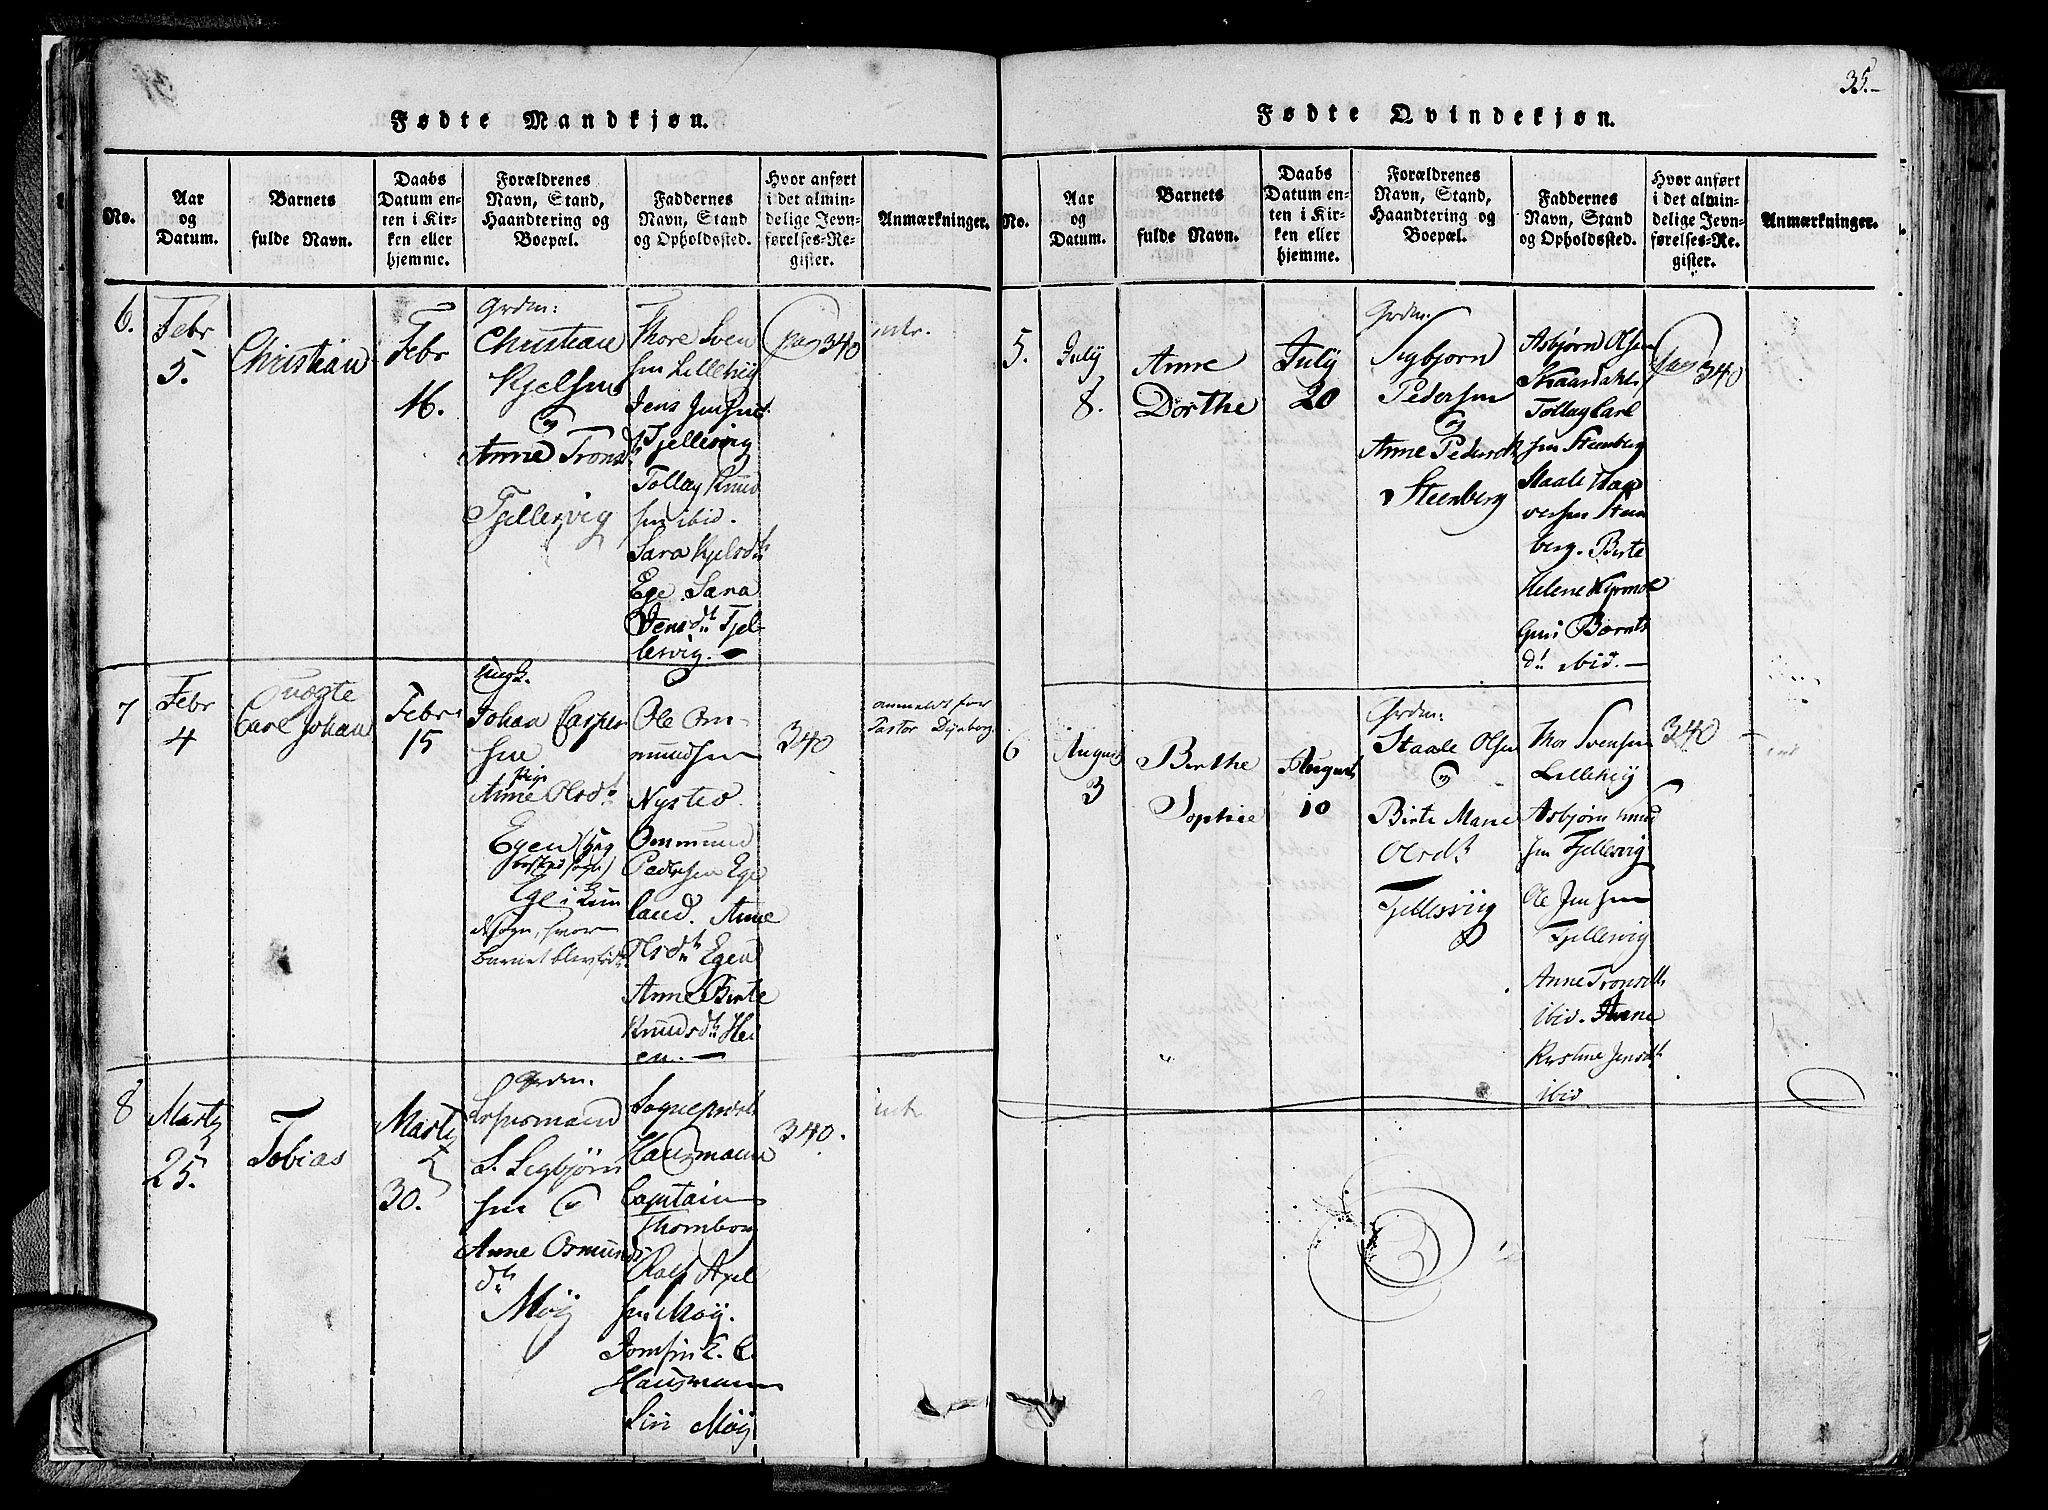 Fødte Mandkjøn.
No.
Aar
og
Datum.
Barnets
fulde Navn.
Daabs
Datum en-
ten i Kir-
ken eller
hjemme.
Forældrenes
Navn, Stand,
Haandtering og
Boepæl.
Faddernes
Navn, Stand
og Opholdssted.
Hvor anført
i det almin-
delige Jevn-
førelses-Re-
gister.
Anmærkninger.
6.
Febr
5.
Christian
Febr
16.
Grdm:
Christian
Kjelsen
og
Anne Tronsd
Tjellesvig
Thore Sven
sen Lillehiy
Jens Jensen
Tjellesvig
Tollag Knud
sen ibid.
Sara Kjelsdtr
Ege. Sara
Jensdtr Tjel-
lesvig.
pag 340
intr.
7
Febr
4
Uægte
Carl Johan
Febr
15
Ungk.
Johan Casper
sen
Pige
Anne Olsdtr
Egen
Ege i
sogn, hvor
barnet blev født
Ole Om-
mundsen
Nysted
Ommund
Pedersen Ege
land. Anne
Olsdtr Egen
Anne Birte
Knudsdtr Hei
en.
340
anmeldt for
Pastor Dynborg.
8
Marty
25.
Tobias
Marty
30.
Grdm.
Lensmand
S. Segbjørn
sen og
Anne Osmunds
dtr
Møy
Hausmann
Capitain
Thornbom
Rolf Axel
sen Møy.
Jomfru E. C.
Hausmann
Siri Møy
340.
intr
35.
Fødte Qvindekjøn.
No.
Aar
og
Datum.
Barnets
fulde Navn.
Daabs
Datum en-
ten i Kir-
ken eller
hjemme.
Forældrenes
Navn, Stand,
Haandtering og
Boepæl.
Faddernes
Navn, Stand
og Opholdssted.
Hvor anført
i det almin-
delige Jevn-
førelses-Re-
gister.
Anmærkninger.
5.
July
8.
Anne
Dorthe
July
20
Grdm.
Segbjørn
Pedersen
og
Anne Pedersdtr
Steenberg
Asbjørn Olsen
Skaardahl,
Tollag Carl
sen Steenberg
Staale Haa
versen Steen
berg. Birte
Helene
Guri Bærnts
dtr ibid.
pag 340
6
August
3
Birthe
Sophie
August
10
Grdm:
Staale Olsen
og
Birte Marie
Olsdtr
Tjellesviig
Thor Svensen
Lillehiy
Asbjørn Knud
sen Tjellesvig
Ole Jensen
Tjellesvig
Anne Tronsdtr
ibid. Anne
Kirstine Jensdtr
ibid
340
intr